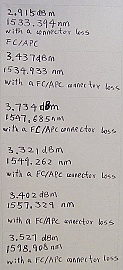 2,915dBm
1533.394nm
with a connector loss
FC/APC
3.437dBm
1534.933 nm
with a FC/APC connector loss
3.734 dBm
1547.685nm
with a FC/APC connector loss
3.321 dBm
1549.262 nm
with a FC/APC connector loss
3.402 dBm
1557.329 nm
with a FC/APC connector loss
3.527 dBm
1598.908 nm
with a FC/APC connector loss